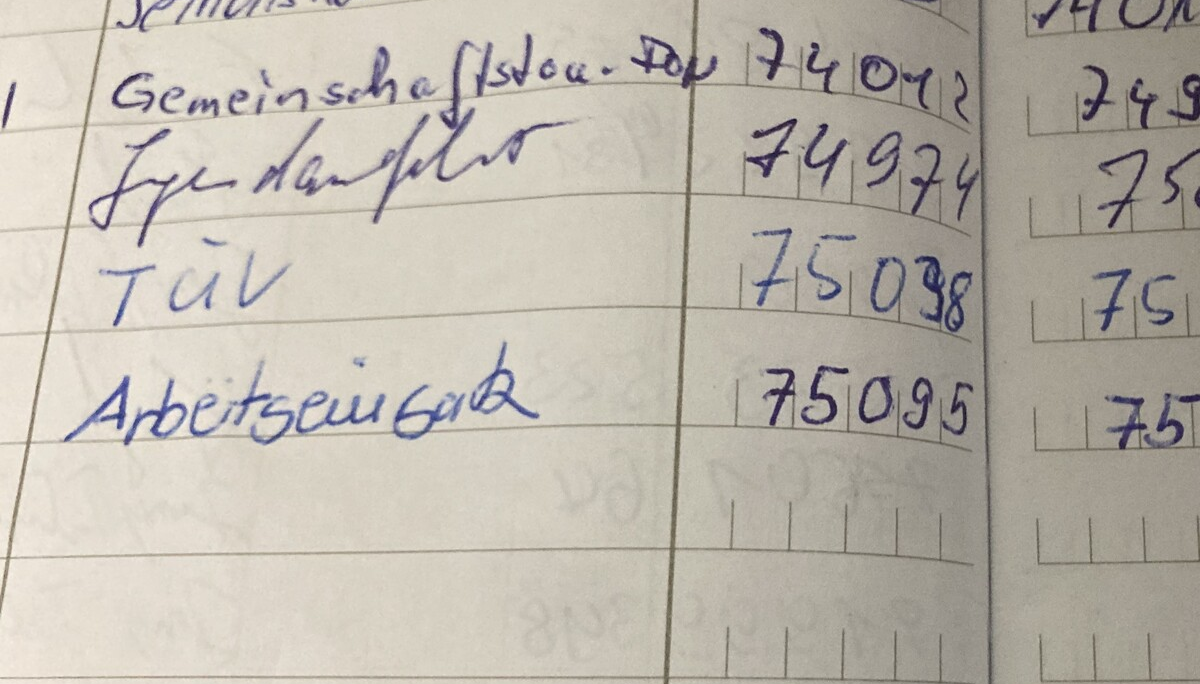 1 Gemeinschaftstou. 74042 749
74974 75
TÜV 75098 75
Arbeitseinsatz 75095 75